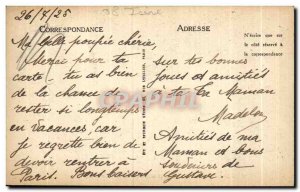 26/7/25
38 Isère
CORRESPONDANCE
ADRESSE
N'écrire que sur
le côté réservé à
la correspondance
Ma belle poupée chérie,
Merci pour ta
carte - tu as bien
de la chance de
rester si longtemps
en vacances, car
je regrette bien de
devoir rentrer à
Paris. Bons baisers
sur tes bonnes
joues et amitiés
à ta Maman
Madelon
Amitiés de ma
Maman et bons
souvenirs de
Gustave.